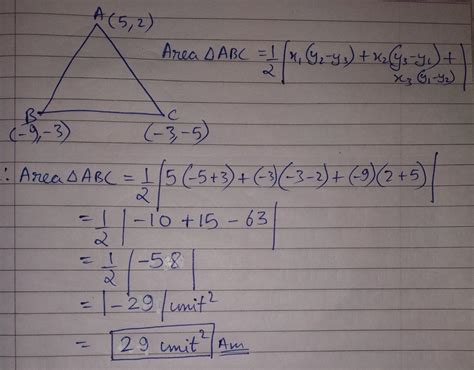 A(5,2)
Area △ABC = 1/2 |x₁(y₂-y₃) + x₂(y₃-y₁) +
x₃(y₁-y₂)|
B C
(-9,-3) (-3,-5)
∴ Area △ABC = 1/2 |5(-5+3) + (-3)(-3-2) + (-9)(2+5)|
= 1/2 |-10 + 15 - 63|
= 1/2 |-58|
= |-29| unit²
= 29 unit² Ans